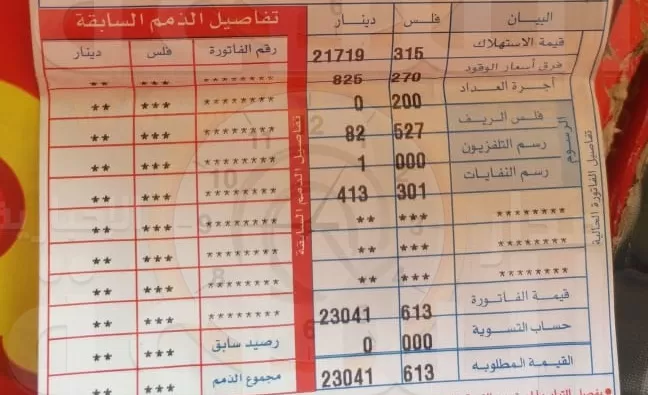 البيان فلس دينار
قيمة الاستهلاك 315 21719
فرق أسعار الوقود 270 825
أجرة العداد 200 0
فلس الريف 527 82
رسم التلفزيون 000 1
رسم النفايات 301 413
******** *** **
******** *** **
******** *** **
قيمة الفاتورة 613 23041
حساب التسوية 000 0
القيمة المطلوبه 613 23041
الرسوم
تفاصيل الفاتورة الحالية
تفاصيل الذمم السابقة
تفاصيل الذمم السابقة
رقم الفاتورة فلس دينار
******** *** **
******** *** **
******** *** **
******** *** **
******** *** **
******** *** **
******** *** **
******** *** **
******** *** **
رصيد سابق *** **
مجموع الذمم *** **